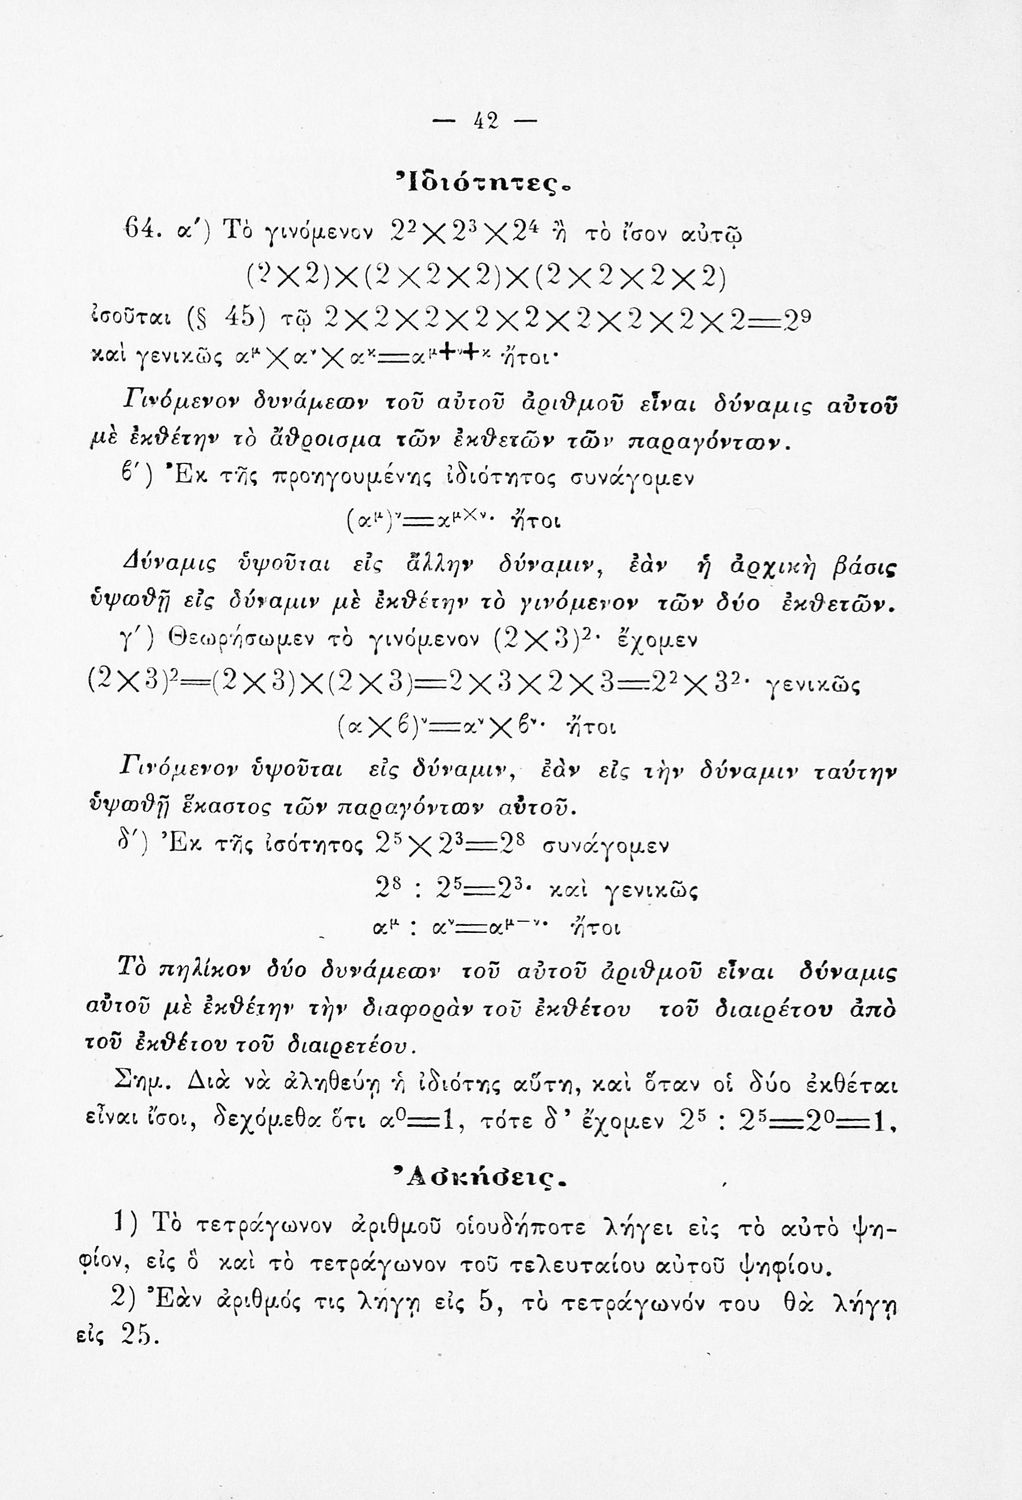 — 42 —
Ἰδιότητες.
64. α′) Τὸ γινόμενον 2²×2³×2⁴ ἢ τὸ ἴσον αὐτῷ
(2×2)×(2×2×2)×(2×2×2×2)
ἰσοῦται (§ 45) τῷ 2×2×2×2×2×2×2×2×2=2⁹
καὶ γενικῶς αᵘ×αᵛ×αᵏ=αᵘ⁺ᵛ⁺ᵏ ἤτοι·
Γινόμενον δυνάμεων τοῦ αὐτοῦ ἀριθμοῦ εἶναι δύναμις αὐτοῦ
μὲ ἐκθέτην τὸ ἄθροισμα τῶν ἐκθετῶν τῶν παραγόντων.
ϐ′) Ἐκ τῆς προηγουμένης ἰδιότητος συνάγομεν
(αᵘ)ᵛ=αᵘ×ᵛ· ἤτοι
Δύναμις ὑψοῦται εἰς ἄλλην δύναμιν, ἐὰν ἡ ἀρχικὴ βάσις
ὑψωθῇ εἰς δύναμιν μὲ ἐκθέτην τὸ γινόμενον τῶν δύο ἐκθετῶν.
γ′) Θεωρήσωμεν τὸ γινόμενον (2×3)²· ἔχομεν
(2×3)²=(2×3)×(2×3)=2×3×2×3=2²×3²· γενικῶς
(α×ϐ)ᵛ=αᵛ×ϐᵛ· ἤτοι
Γινόμενον ὑψοῦται εἰς δύναμιν, ἐὰν εἰς τὴν δύναμιν ταύτην
ὑψωθῇ ἕκαστος τῶν παραγόντων αὐτοῦ.
δ′) Ἐκ τῆς ἰσότητος 2⁵×2³=2⁸ συνάγομεν
2⁸ : 2⁵=2³· καὶ γενικῶς
αᵘ : αᵛ=αᵘ⁻ᵛ· ἤτοι
Τὸ πηλίκον δύο δυνάμεων τοῦ αὐτοῦ ἀριθμοῦ εἶναι δύναμις
αὐτοῦ μὲ ἐκθέτην τὴν διαφορὰν τοῦ ἐκθέτου τοῦ διαιρέτου ἀπὸ
τοῦ ἐκθέτου τοῦ διαιρετέου.
Σημ. Διὰ νὰ ἀληθεύῃ ἡ ἰδιότης αὕτη, καὶ ὅταν οἱ δύο ἐκθέται
εἶναι ἴσοι, δεχόμεθα ὅτι α⁰=1, τότε δ’ ἔχομεν 2⁵ : 2⁵=2⁰=1.
Ἀσκήσεις.
1) Τὸ τετράγωνον ἀριθμοῦ οἱουδήποτε λήγει εἰς τὸ αὐτὸ ψη-
φίον, εἰς ὃ καὶ τὸ τετράγωνον τοῦ τελευταίου αὐτοῦ ψηφίου.
2) Ἐὰν ἀριθμός τις λήγῃ εἰς 5, τὸ τετράγωνόν του θὰ λήγῃ
εἰς 25.